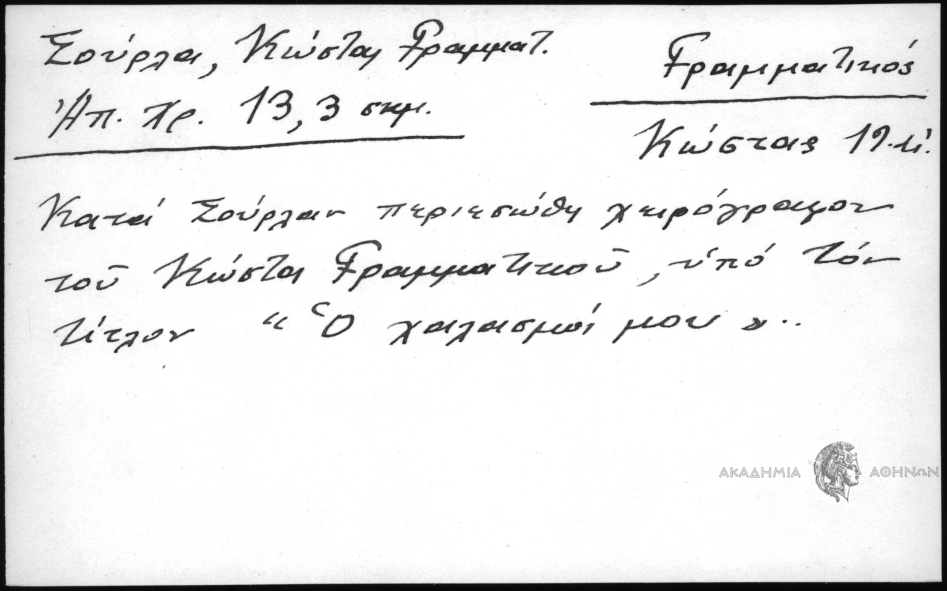 Σούρλα, Κώστα Γραμματ.
Ἠπ. Χρ. 13, 3 σκμ.
Γραμματικός
Κώστας 19. αἰ.
Κατά Σούρλαν περιεσώθη χειρόγραφον
τοῦ Κώστα Γραμματικοῦ, ὑπό τόν
τίτλον "Ὁ χαλασμόὶ μου »..
ΑΚΑΔΗΜΙΑ ΑΘΗΝΩΝ